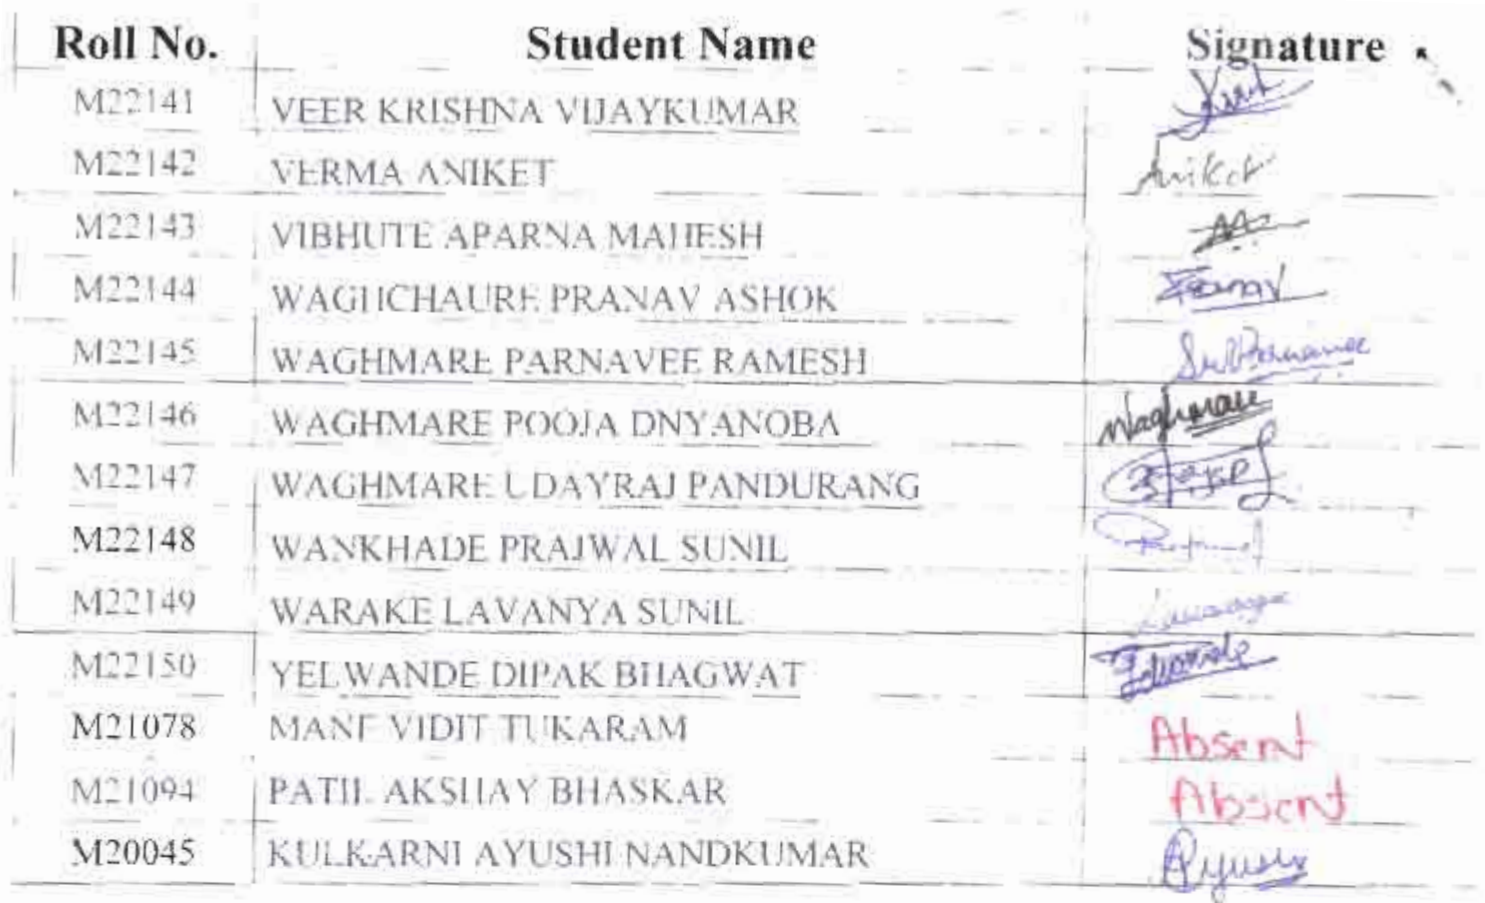 Roll No. Student Name Signature
M22141 VEER KRISHNA VIJAYKUMAR
M22142 VERMA ANIKET Aniket
M22143 VIBHUTE APARNA MAHESH
M22144 WAGHCHAURE PRANAV ASHOK Pranav
M22145 WAGHMARE PARNAVEE RAMESH
M22146 WAGHMARE POOJA DNYANOBA Waghmare
M22147 WAGHMARE UDAYRAJ PANDURANG
M22148 WANKHADE PRAJWAL SUNIL
M22149 WARAKE LAVANYA SUNIL
M22150 YELWANDE DIPAK BHAGWAT
M21078 MANE VIDIT TUKARAM Absent
M21094 PATIL AKSHAY BHASKAR Absent
M20045 KULKARNI AYUSHI NANDKUMAR